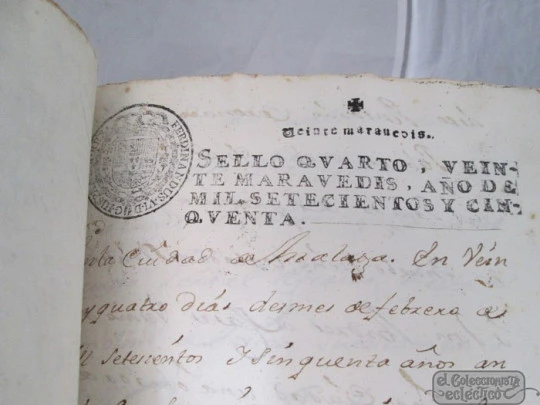 Veinte maravedis.
SELLO QVARTO, VEIN-
TE MARAVEDIS, AÑO DE
MIL SETECIENTOS Y CIN-
QVENTA.
FERDINANDUS VI D G
Ciudad de Malaga. En Vein
yquatro dias delmes de febrero de
setesientos Y sinquenta años an
el Coleccionista
ecléctico